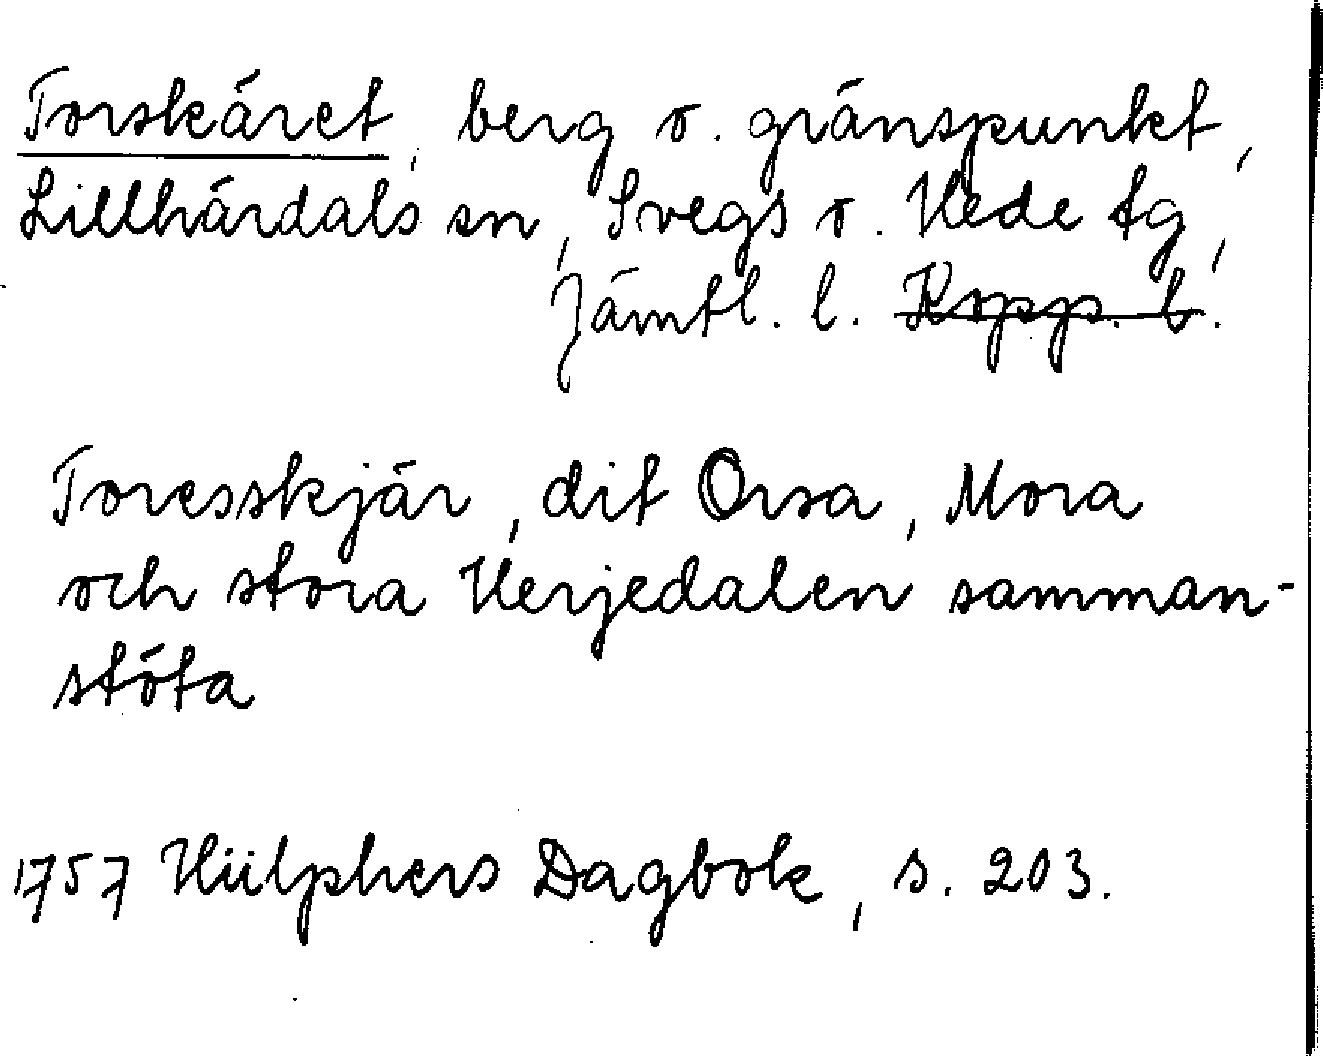 Torskäret, berg o. gränspunkt,
Lillhärdals sn, Svegs o. Hede tg,
Jämtl. l. ~~Kopp. b.~~
Toresskjär, dit Orsa, Mora
och stora Herjedalen samman-
stöta
1757 Hülphers Dagbok, s. 203.